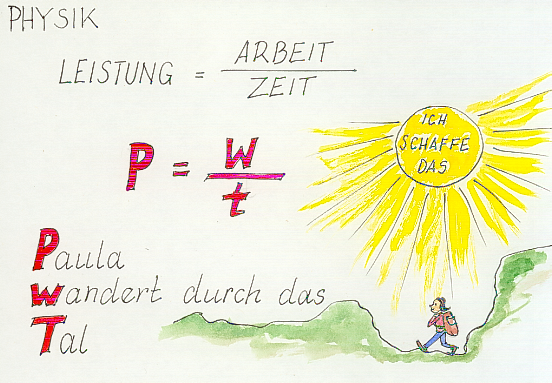 PHYSIK
LEISTUNG = ARBEIT
ZEIT
P = W
t
ICH
SCHAFFE
DAS
Paula
wandert durch das
Tal